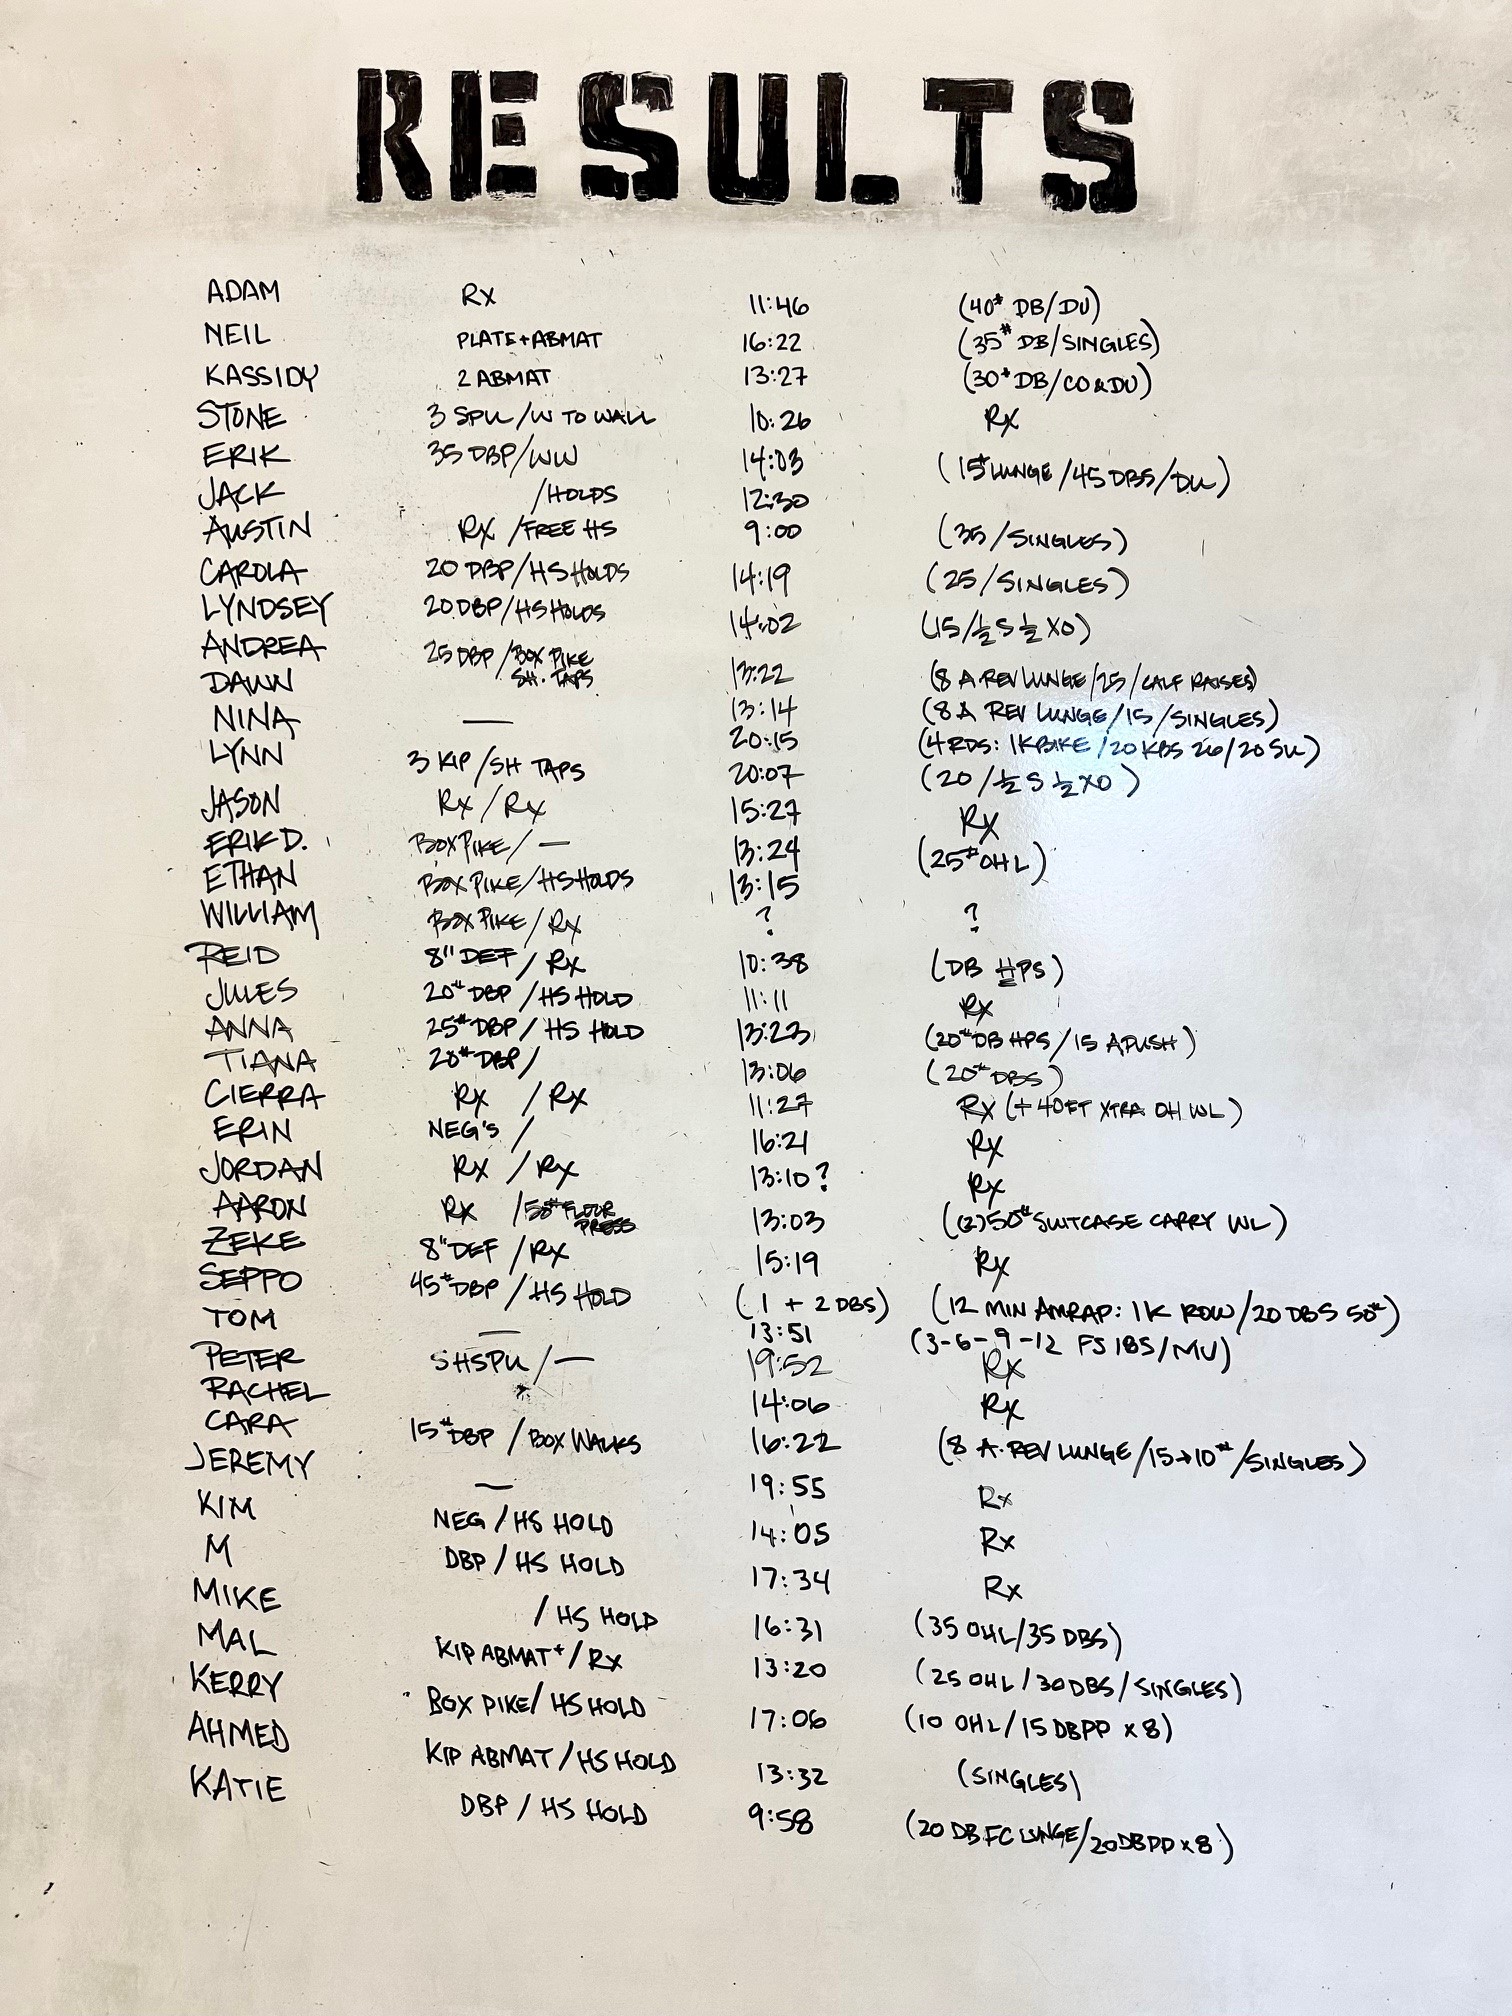 RESULTS
ADAM RX 11:46 (40# DB/DU)
NEIL PLATE+ABMAT 16:22 (35# DB/SINGLES)
KASSIDY 2 ABMAT 13:27 (30# DB/CO&DU)
STONE 3 SPU/W TO WALL 10:26 RX
ERIK 35 DBP/WW 14:03 (15# LUNGE/45 DBS/DU)
JACK /HOLDS 12:30
AUSTIN RX /FREE HS 9:00 (35/SINGLES)
CAROLA 20 DBP/HS HOLDS 14:19 (25/SINGLES)
LYNDSEY 20 DBP/HS HOLDS 14:02 (15/½ S ½ XO)
ANDREA 25 DBP/BOX PIKE SH. TAPS 13:22 (8 A. REV LUNGE/25/CALF RAISES)
DAWN 13:14 (8 A REV LUNGE/15/SINGLES)
NINA — 20:15 (4 RDS: 1K BIKE/20 KBS 26/20 SU)
LYNN 3 KIP/SH TAPS 20:07 (20/½ S ½ XO)
JASON RX/RX 15:27 RX
ERIK D. BOX PIKE/— 13:24 (25# OHL)
ETHAN BOX PIKE/HS HOLDS 13:15
WILLIAM BOX PIKE/RX ? ?
REID 8" DEF/RX 10:38 (DB HPS)
JULES 20# DBP/HS HOLD 11:11 RX
ANNA 25# DBP/HS HOLD 13:23 (20# DB HPS/15 A PUSH)
TIANA 20# DBP/ 13:06 (20# DBS)
CIERRA RX /RX 11:27 RX (+ 40FT XTRA OH WL)
ERIN NEG'S / 16:21 RX
JORDAN RX /RX 13:10? RX
AARON RX /50# FLOOR PRESS 13:03 ((2) 50# SUITCASE CARRY WL)
ZEKE 8" DEF/RX 15:19 RX
SEPPO 45# DBP/HS HOLD (1 + 2 DBS) (12 MIN AMRAP: 1K ROW/20 DBS 50#)
TOM — 13:51 (3-6-9-12 FS 185/MU)
PETER SHSPU/— 19:52 RX
RACHEL 14:06 RX
CARA 15# DBP/BOX WALKS 16:22 (8 A. REV LUNGE/15→10#/SINGLES)
JEREMY — 19:55 RX
KIM NEG/HS HOLD 14:05 RX
M DBP/HS HOLD 17:34 RX
MIKE /HS HOLD 16:31 (35 OHL/35 DBS)
MAL KIP ABMAT+/RX 13:20 (25 OHL/30 DBS/SINGLES)
KERRY BOX PIKE/HS HOLD 17:06 (10 OHL/15 DBPP x 8)
AHMED KIP ABMAT/HS HOLD 13:32 (SINGLES)
KATIE DBP/HS HOLD 9:58 (20 DB FC LUNGE/20 DBPP x 8)